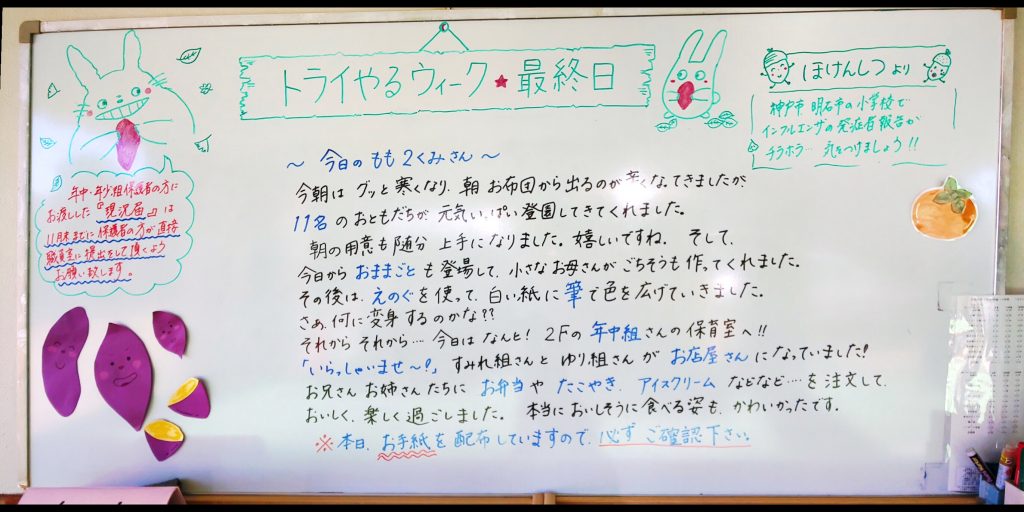 トライやるウィーク★最終日
ほけんしつ より
神戸市 明石市の小学校で
インフルエンザの発症者報告が
チラホラ… 気をつけましょう!!
年中・年少組保護者の方に
お渡しした『現況届』は
11月末までに保護者の方が直接
職員室に提出をして頂くよう
お願い致します。
～ 今日の もも2くみさん ～
今朝は グッと寒くなり、朝 お布団から出るのが辛くなってきましたが、
11名 のおともだちが 元気いっぱい登園してきてくれました。
朝の用意も随分 上手になりました。嬉しいですね。 そして、
今日から おままごと も登場して、小さなお母さんが ごちそうも 作ってくれました。
その後は、えのぐを使って、白い紙に 筆で色を広げていきました。
さあ、何に変身するのかな??
それから それから… 今日は なんと! 2Fの 年中組さんの保育室へ!!
「いらっしゃいませ～!」 すみれ組さんと ゆり組さん が お店屋さん になっていました!
お兄さん お姉さん たちに お弁当や たこやき、アイスクリーム などなど…を注文して、
おいしく、楽しく過ごしました。 本当においしそうに食べる姿も、かわいかったです。
※ 本日、お手紙を配布していますので、必ず ご確認下さい。